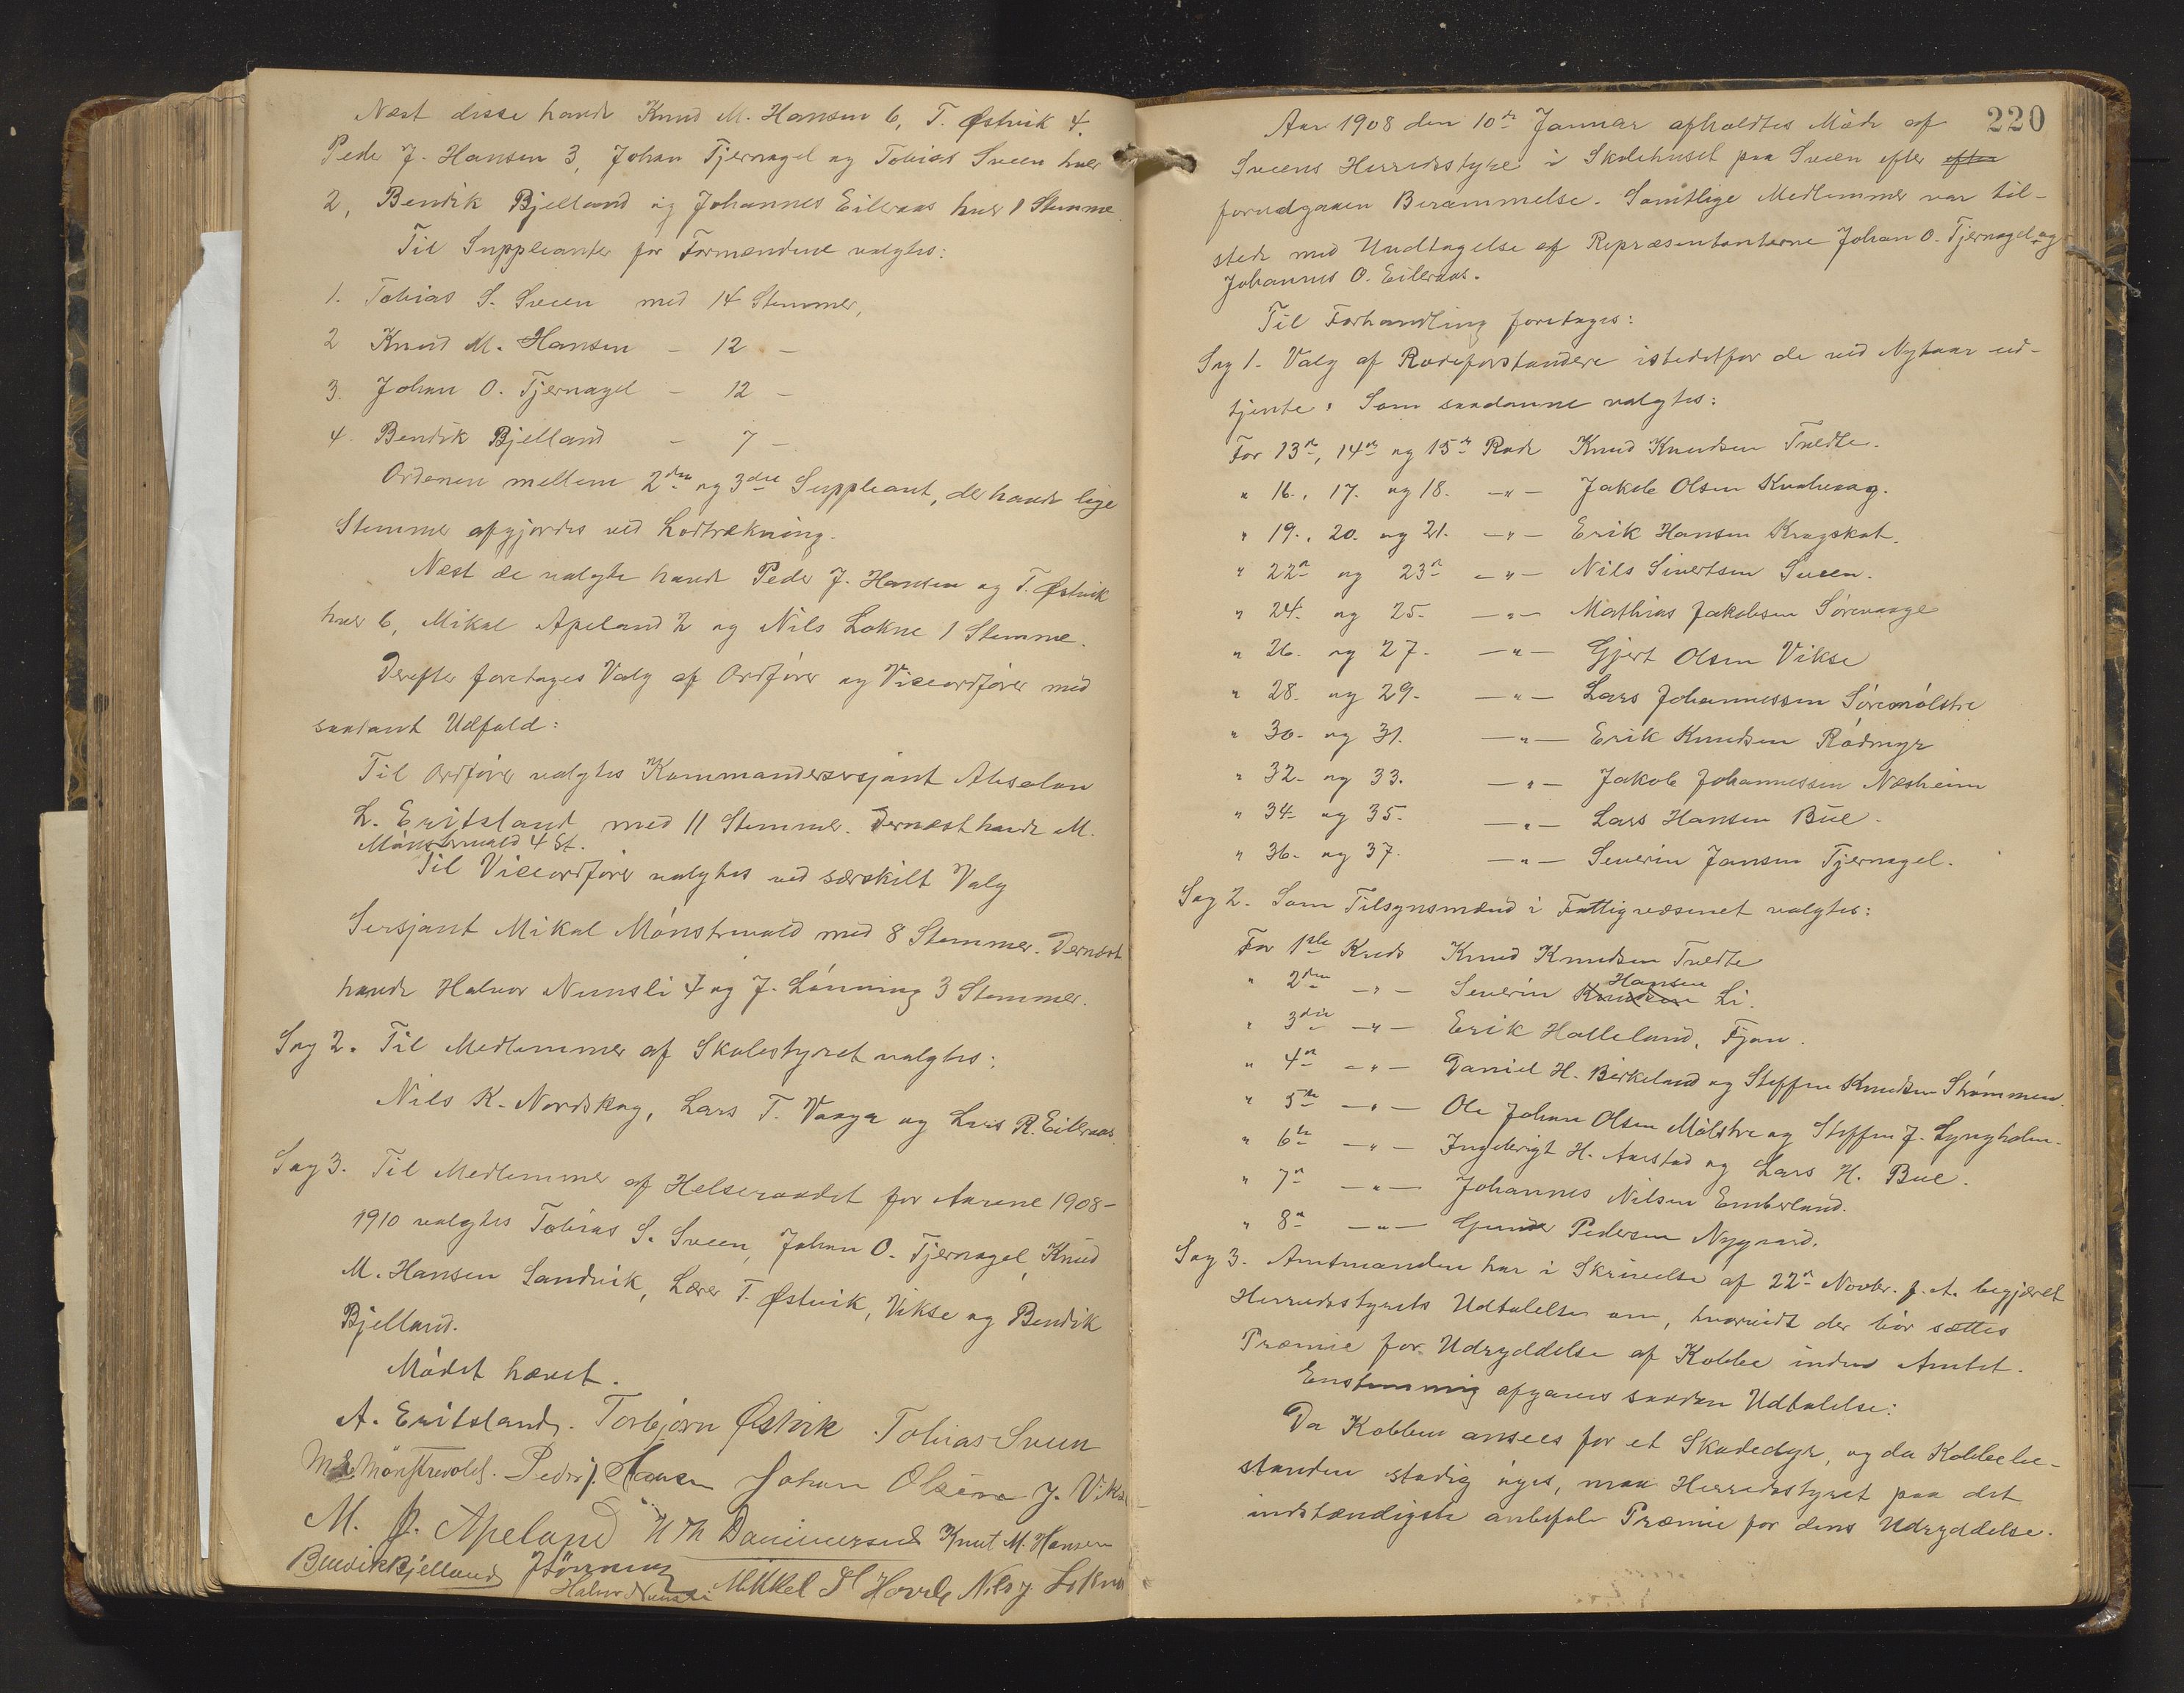 Næst disse havde Knud M. Hansen 6, T. Østvik 4,
Peder J. Hansen 3, Johan Tjernagel og Tobias Sveen hver
2, Bendik Bjelland og Johannes Eileraas hver 1 Stemme.
Til Suppleanter for Formændene valgtes:
1. Tobias S. Sveen med 14 Stemmer,
2 Knud M. Hansen - 12 -
3. Johan O. Tjernagel - 12 -
4. Bendik Bjelland - 7 -
Ordenen mellem 2den og 3die Suppleant, der havde lige
Stemmer afgjordes ved Lodtrækning.
Næst de valgte havde Peder J. Hansen og T. Østvik
hver 6, Mikal Apeland 2 og Nils Lokne 1 Stemme.
Derefter foretoges Valg af Ordfører og Viceordfører med
saadant Udfald:
Til Ordfører valgtes Kommandersersjant Absalon
L. Emitsland med 11 Stemmer. Dernæst havde M.
Mønstrevold 4 St.
Til Viceordfører valgtes ved særskilt Valg
Sersjant Mikal Mønstrevold med 8 Stemmer. Dernæst
havde Halvor Nunsli 4 og J. Lønning 3 Stemmer.
Sag 2. Til Medlemmer af Skolestyret valgtes:
Nils K. Nordskog, Lars T. Vaaga og Lars R. Eileraas.
Sag 3. Til Medlemmer af Helseraadet for Aarene 1908-
1910 valgtes Tobias S. Sveen, Johan O. Tjernagel, Knud
M. Hansen Sandvik, Lærer T. Østvik, Vikse og Bendik
Bjelland.
Mødet hævet.
A. Emitsland. Torbjørn Østvik Tobias Sveen
Mønstrevold. Peder J. Hansen Johan Olsen J. Vikse
M. J. Apeland Knut M. Hansen
Bendik Bjelland JLønning
Halvor Nunsli Mikkel Hovde Nils J Lokna
220
Aar 1908 den 10de Januar afholdtes Møde af
Sveens Herredsstyre i Skolehuset paa Sveen efter efter
forudgaaen Berammelse. Samtlige Medlemmer var til-
stede med Undtagelse af Repræsentanterne Johan O. Tjernagel og
Johannes O. Eileraas.
Til Forhandling foretoges:
Sag 1. Valg af Rodeforstandere istedetfor de ved Nytaar ud-
tjente. Som saadanne valgtes:
For 13de, 14de og 15de Rode Knud Knudsen Tvedte.
" 16., 17. og 18. -"- Jakob Olsen Kvalvaag.
" 19., 20. og 21. -"- Erik Hansen Kragskot.
" 22de og 23de -"- Nils Sivertsen Sveen.
" 24. og 25. -"- Mathias Jakobsen Sørevaage
" 26. og 27. -"- Gjert Olsen Vikse
" 28. og 29. -"- Lars Johannessen Søremølstre
" 30. og 31. -"- Erik Knudsen Rødmyr
" 32. og 33. -"- Jakob Johannessen Næsheim
" 34. og 35. -"- Lars Hansen Bue.
" 36. og 37. -"- Severin Jansen Tjernagel.
Sag 2. Som Tilsynsmænd i Fattigvæsenet valgtes:
For 1ste Kreds Knud Knudsen Tvedte
" 2den -"- Severin Knudsen Hansen Li.
" 3die -"- Erik Halleland, Fjon.
" 4de -"- Daniel H. Birkeland og Steffen Knudsen Strømmen.
" 5te -"- Ole Johan Olsen Mølstre og Steffen J. Lyngholm.
" 6te -"- Ingebrigt H. Aarstad og Lars H. Bue.
" 7de -"- Johannes Nilsen Emberland.
" 8de -"- Gunder Pedersen Nygaard.
Sag 3. Amtmanden har i Skrivelse af 22de Novbr. f. A. begjæret
Herredsstyrets Udtalelse om, hvorvidt der bør sættes
Præmie for Udryddelse af Kobbe inden Amtet.
Enstemmig afgaves saadan Udtalelse:
Da Kobben ansees for et Skadedyr, og da Kobbebe-
standen stadig øges, maa Herredsstyret paa det
indstændigste anbefale Præmie for dens Udryddelse.